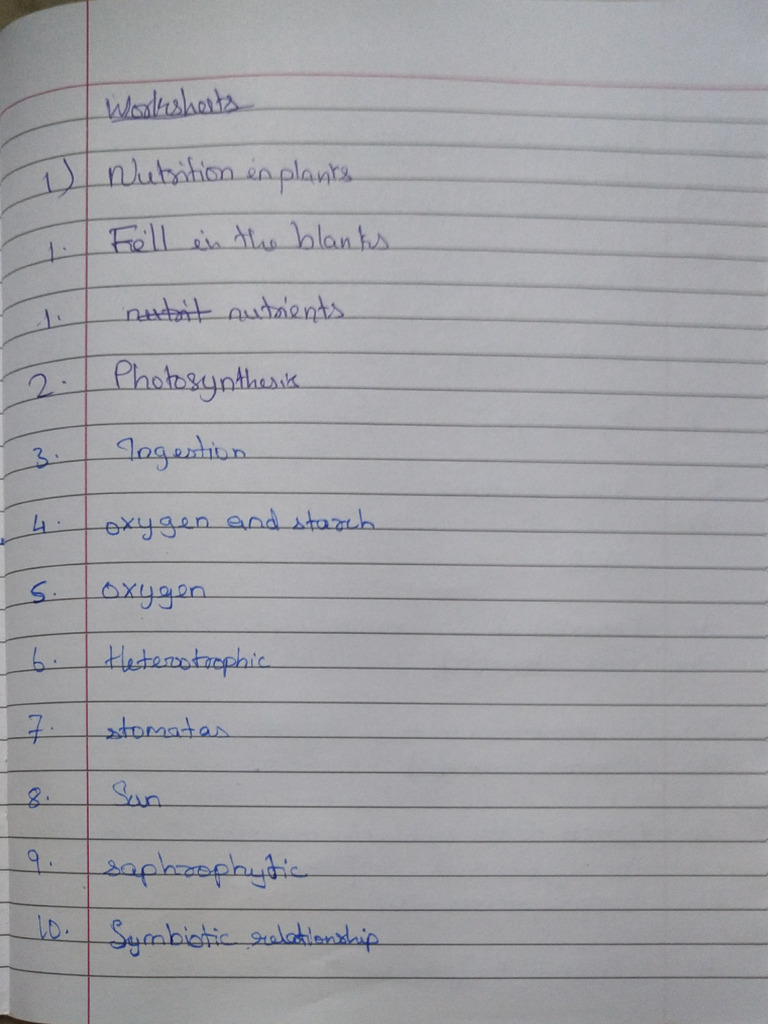 Worksheets
1) Nutrition in plants
1. Fill in the blanks
1. nutrit nutrients
2. Photosynthesis
3. Ingestion
4. oxygen and starch
5. oxygen
6. Heterotrophic
7. stomatas
8. Sun
9. saphrophytic
10. Symbiotic relationship